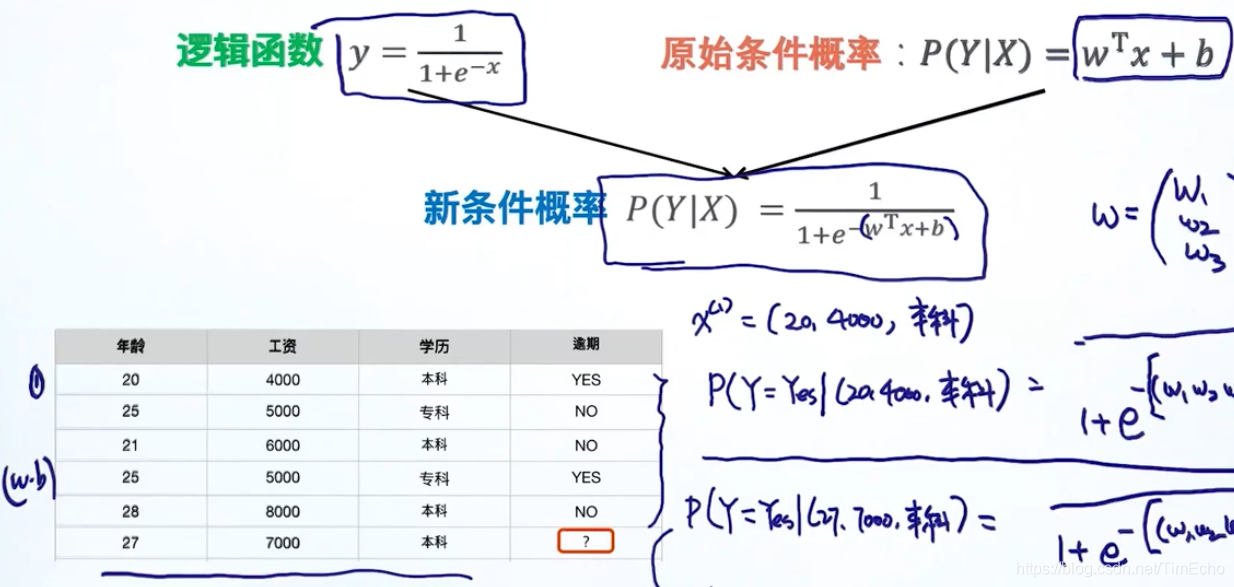 逻辑函数 y = 1/(1+e^{-x})
原始条件概率：P(Y|X) = w^T x + b
新条件概率 P(Y|X) = 1/(1+e^{-(w^T x+b)})
w = (w1
w2
w3
x^(1) = (20, 4000, 本科)
年龄 工资 学历 逾期
① 20 4000 本科 YES
25 5000 专科 NO
21 6000 本科 NO
(w·b) 25 5000 专科 YES
28 8000 本科 NO
27 7000 本科 ?
P(Y=Yes|(20,4000,本科) =
1+e^-[(w1 w2
P(Y=Yes|(27,7000,本科) =
1+e^-[(w1,w2
https://blog.csdn.net/TimEcho